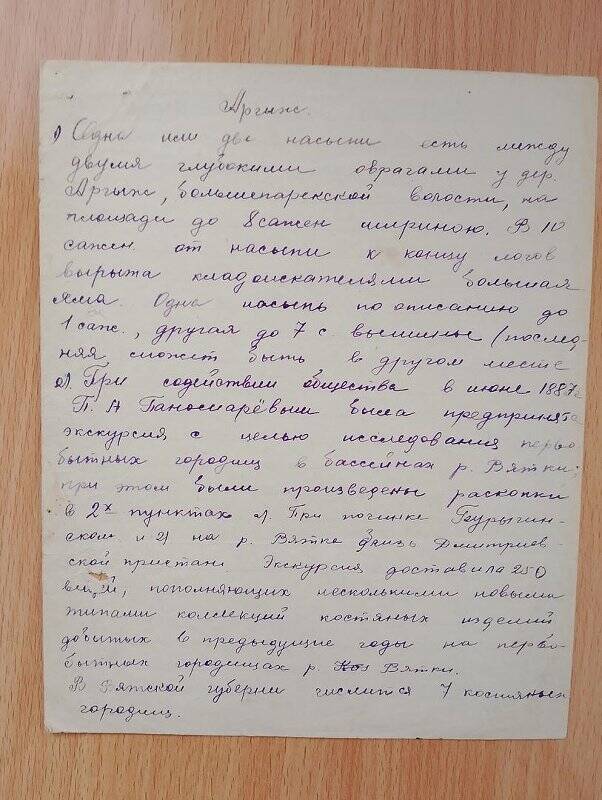 Аргыж.
1) Одна или две насыпи есть между
двумя глубокими оврагами у дер.
Аргыж, большепарекской волости, на
площади до 8 сажен шириною. В 10
сажен. от насыпи к концу логов
вырыта кладоискателями большая
яма. Одна насыпь по описанию до
1 саж., другая до 7 с. вышины (послед-
няя, может быть в другом месте
2). При содействии общества в июне 1887 г
П. А Паномарёвым была предпринята
экскурсия с целью исследования перво
бытных городищ в бассейнах р. Вятки;
при этом были произведены раскопки
в 2х пунктах 1). При починке
ском и 2) на р. Вятке близь Дмитриев-
ской пристани. Экскурсия доставила 250
вещей, пополняющих несколькими новыми
типами коллекций костяных изделий
добытых в предыдущие годы на перво-
бытных городищах р. Вятки.
В Вятской губернии числится 7 костяных
городищ.